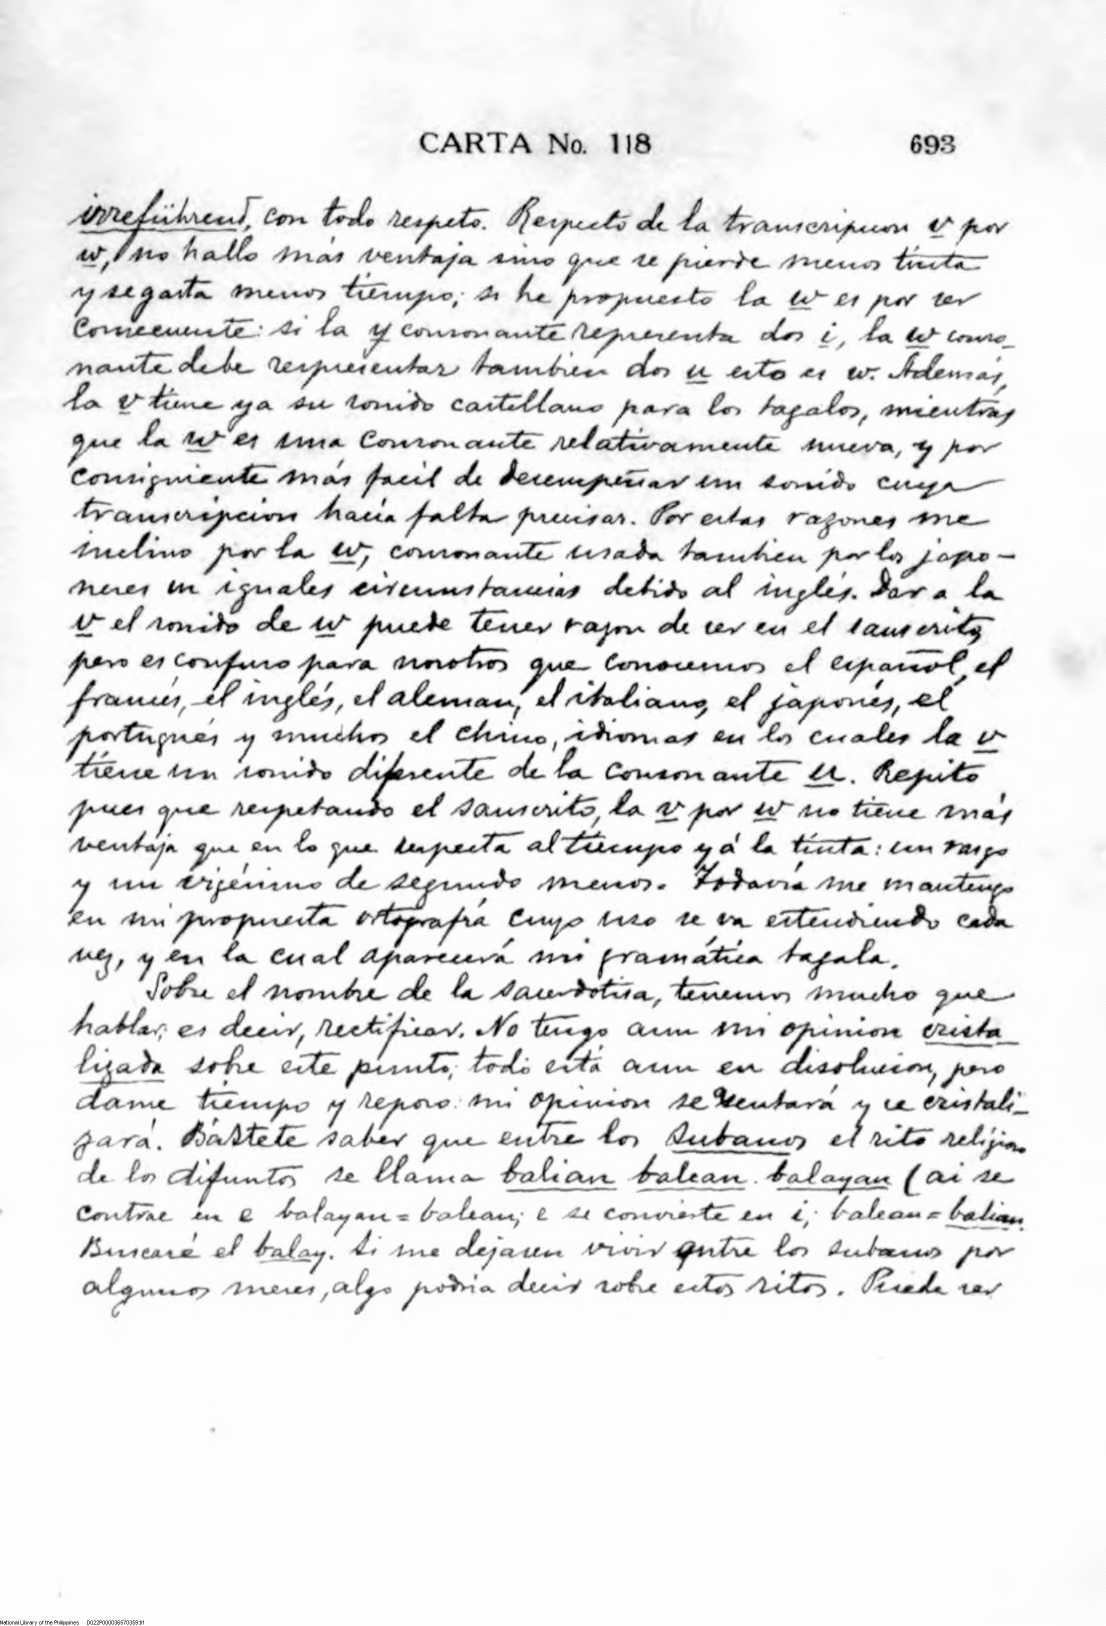 CARTA No. 118 693
irreführend, con todo respeto. Respecto de la transcripcion v por
w, no hallo más ventaja sino que se pierde menos tinta
y se gasta menos tiempo; si he propuesto la w es por ser
consecuente: si la y consonante representa dos i, la w conso-
nante debe respresentar tambien dos u esto es w. Además,
la v tiene ya su sonido castellano para los tagalos, mientras
que la w es una consonante relativamente nueva, y por
consiguiente más facil de desempeñar un sonido cuya
transcripcion hacía falta precisar. Por estas razones me
inclino por la w, consonante usada tambien por los japo-
neses en iguales circumstancias debido al inglés. Dar a la
v el sonido de w puede tener razon de ser en el sanscrito,
pero es confuso para nosotros que conocemos el español, el
francés, el inglés, el aleman, el italiano, el japonés, el
portugués y muchos el chino, idiomas en los cuales la v
tiene un sonido diferente de la consonante u. Repito
pues que respetando el sanscrito, la v por w no tiene más
ventaja que en lo que respecta al tiempo y á la tinta: un rasgo
y un vigésimo de segundo menos. Todavía me mantengo
en mi propuesta ortografía cuyo uso se va estendiendo cada
vez, y en la cual aparecerá mi gramática tagala.
Sobre el nombre de la sacerdotisa, tenemos mucho que
hablar; es decir, rectificar. No tengo aun mi opinion crista
lizada sobre este punto; todo está aun en disolucion, pero
dame tiempo y reposo: mi opinion se sentará y se cristali-
zará. Bástete saber que entre los Subanos el rito religioso
de los difuntos se llama balian balean. balayan (ai se
contrae en e balayan = balean; e se convierte en i; balean = balian.
Buscaré el balay. Si me dejasen vivir entre los subanos por
algunos meses, algo podria decir sobre estos ritos. Puede ser
National Library of the Philippines